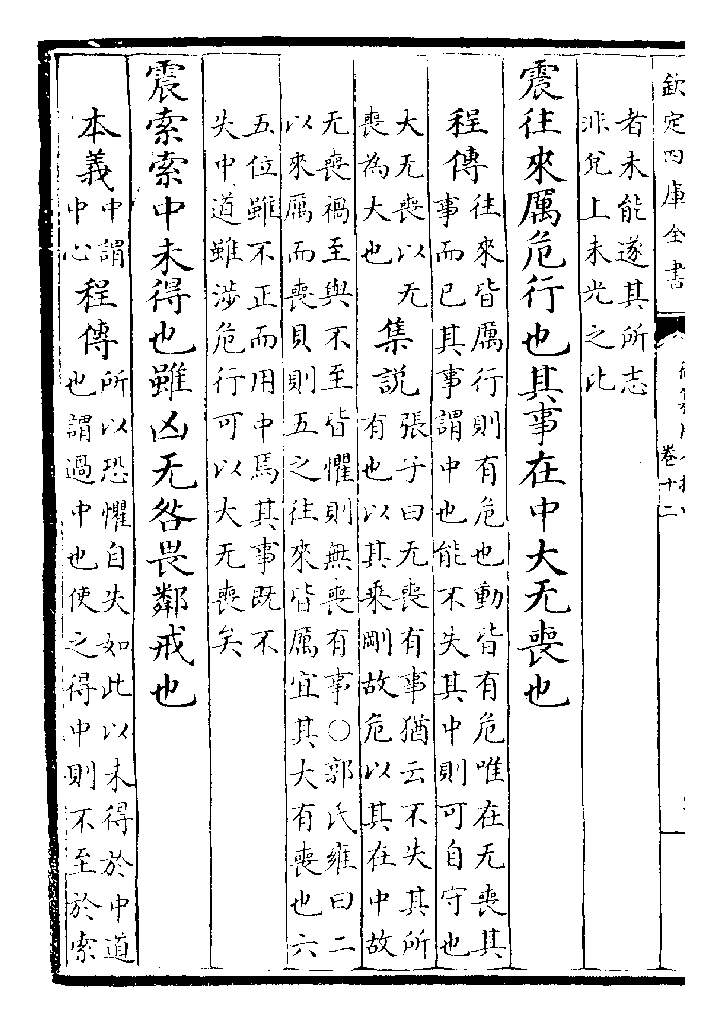 欽定四庫全書
卷十二
者未能遂其所志
非兌上未光之此
震往來厲危行也其事在中大无喪也
程傳
往來皆厲行則有危也動皆有危唯在无喪其
事而已其事謂中也能不失其中則可自守也
大无喪以无
喪為大也
集説
張子曰无喪有事猶云不失其所
有也以其乘剛故危以其在中故
无喪禍至與不至皆懼則無喪有事○郭氏雍曰二
以來厲而喪貝則五之往來皆厲宜其大有喪也六
五位雖不正而用中焉其事既不
失中道雖涉危行可以大无喪矣
震索索中未得也雖凶无咎畏鄰戒也
本義
中謂
中心
程傳
所以恐懼自失如此以未得於中道
也謂過中也使之得中則不至於索